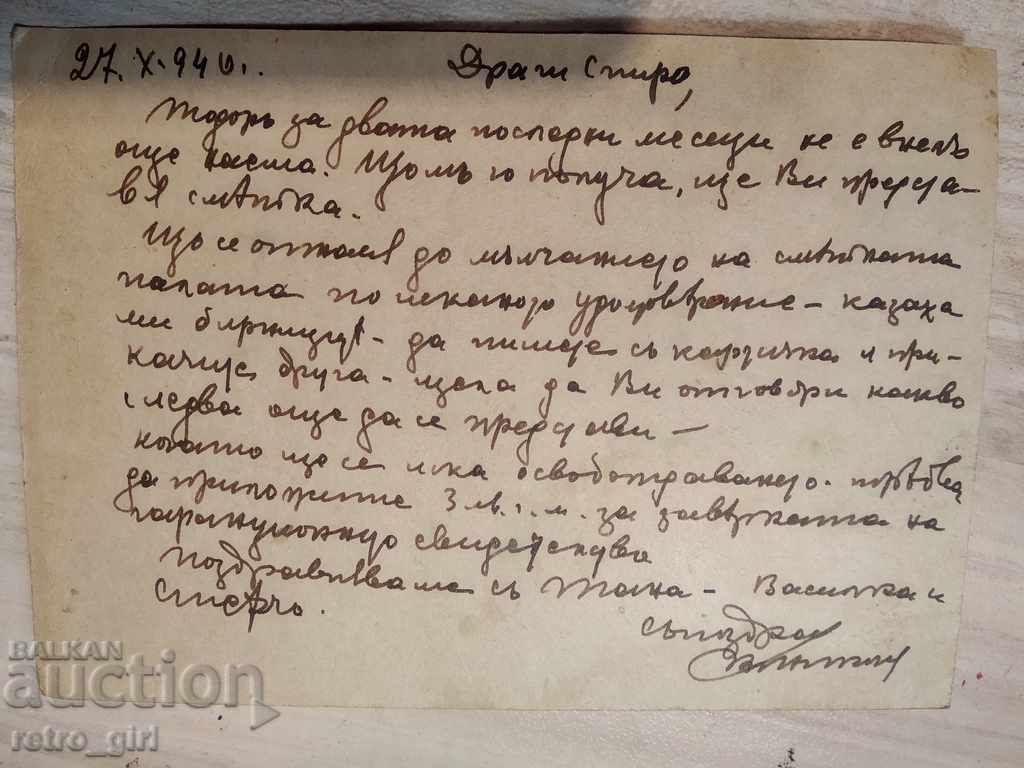 27.X.940.
Драги Спиро,
Тодоръ за двата последни месеци не е внелъ
още наема. Щомъ го получа, ще Ви предста-
вя сметка.
Що се отнася до мълчанието на сметната
палата по исканото удостоверение - казаха
ми - да пишете съ картичка и при-
качите друга - щела да Ви отговори какво
следва още да се представи -
когато ще се иска освобождаването. трѣбва
да приложите 3 лв. г. м. за завръзката на
гаранционното свидетелство
Поздравяваме съ - Василка и
Стефчо.
съ поздрав
BALKAN
auction
retro_girl